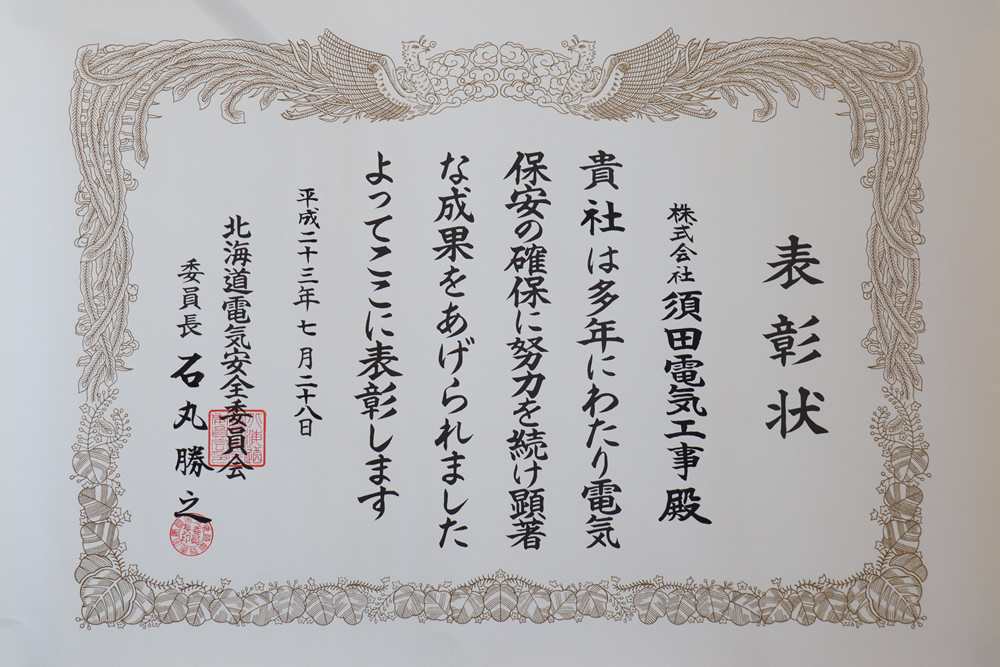 表彰状
株式会社 須田電気工事殿
貴社は多年にわたり電気
保安の確保に努力を続け顕著
な成果をあげられました
よってここに表彰します
平成二十三年七月二十八日
北海道電気安全委員会
委員長 石丸勝之